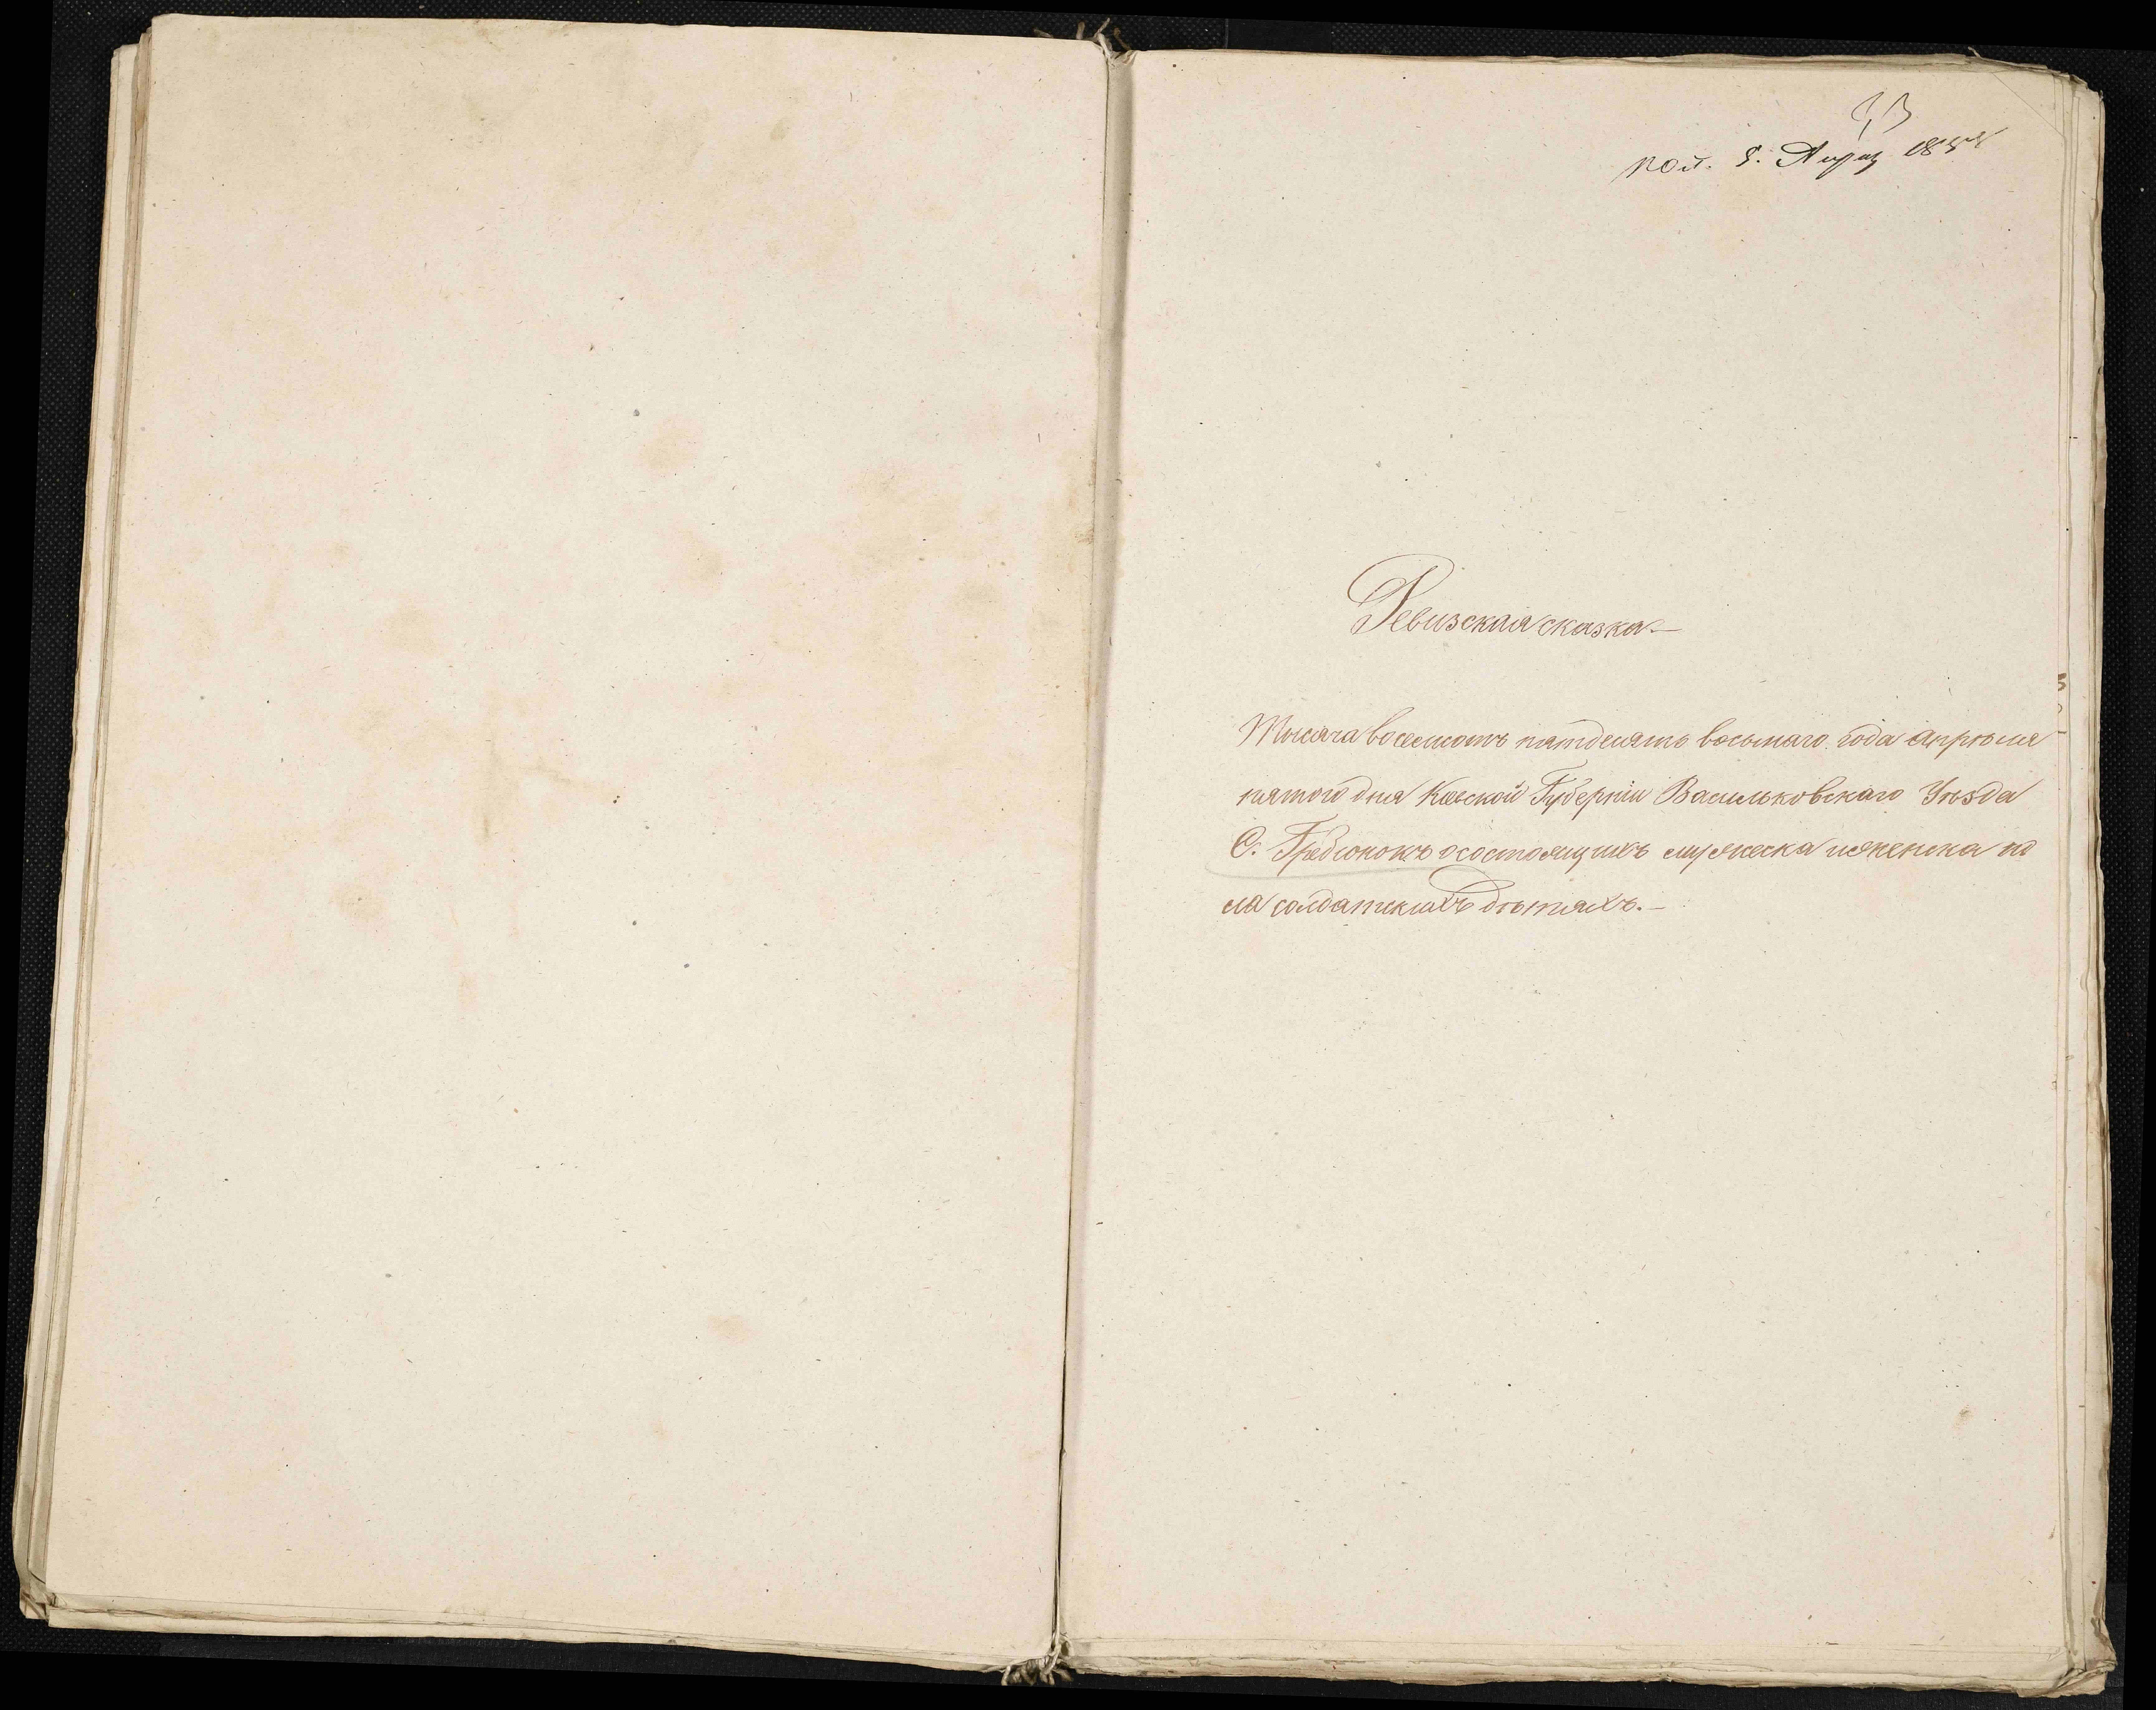 пол. 8. Апрѣ 1858
Ревизская сказка.—
Тысяча восемсотъ пятдесятъ восьмаго года Апрѣля
пятого дня Киевской Губерніи Васильковскаго Уѣзда
С. Гребюнокъ о состоящихъ мужеска и женска по
ла солдатскихъ дѣтяхъ.—